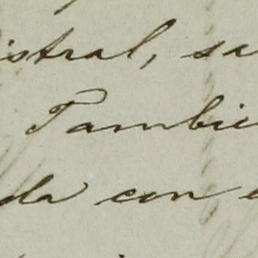 istral, sa
Tambie
da con